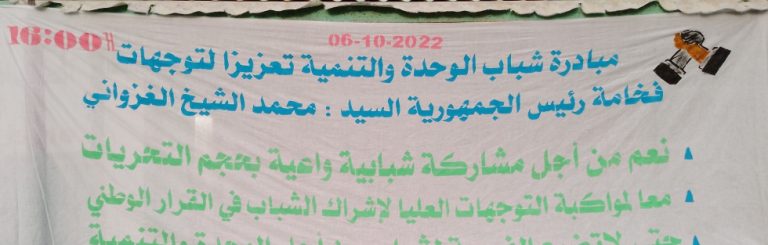 16:00H
06-10-2022
مبادرة شباب الوحدة والتنمية تعزيزا لتوجهات
فخامة رئيس الجمهورية السيد : محمد الشيخ الغزواني
نعم من أجل مشاركة شبابية واعية بحجم التحريات
معا لمواكبة التوجهات العليا لإشراك الشباب في القرار الوطني
حتى لا تضيع